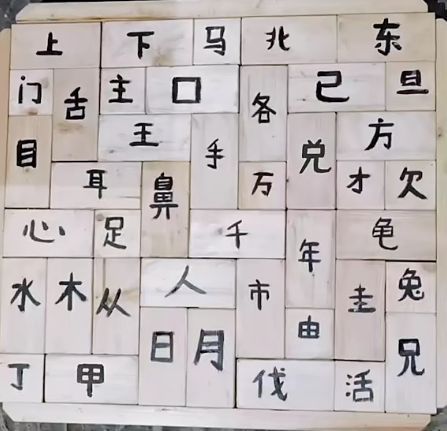 上 下 马 北 东
门 舌 主 口 各 己 旦
目 王 手 兑 方
耳 鼻 万 才 欠
心 足 千 年 龟
水 木 从 人 市 圭 兔
日 月 由 兄
丁 甲 伐 活